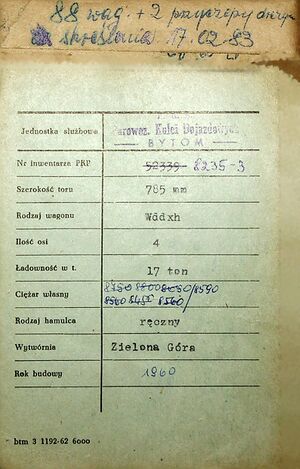 88 wag. + 2 przyczepy
skreślenia 17.02.83
Jednostka służbowa
Parowoz. Kolei Dojazdowych
BYTOM
Nr inwentarza PKP 52339 8235-3
Szerokość toru 785 mm
Rodzaj wagonu Wddxh
Ilość osi 4
Ładowność w t. 17 ton
Ciężar własny 8590
8560
Rodzaj hamulca ręczny
Wytwórnia Zielona Góra
Rok budowy 1960
btm 3 1192-62 6000